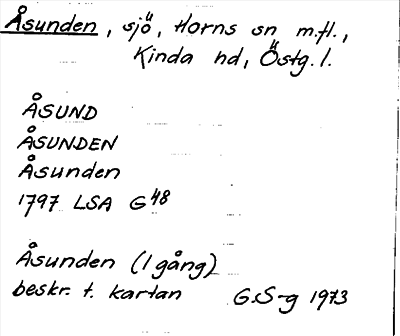 Åsunden, sjö, Horns sn m.fl.,
Kinda hd, Östg. l.
ÅSUND
ÅSUNDEN
Åsunden
1797 LSA G48
Åsunden (1 gång)
beskr. t. kartan G.S-g 1973